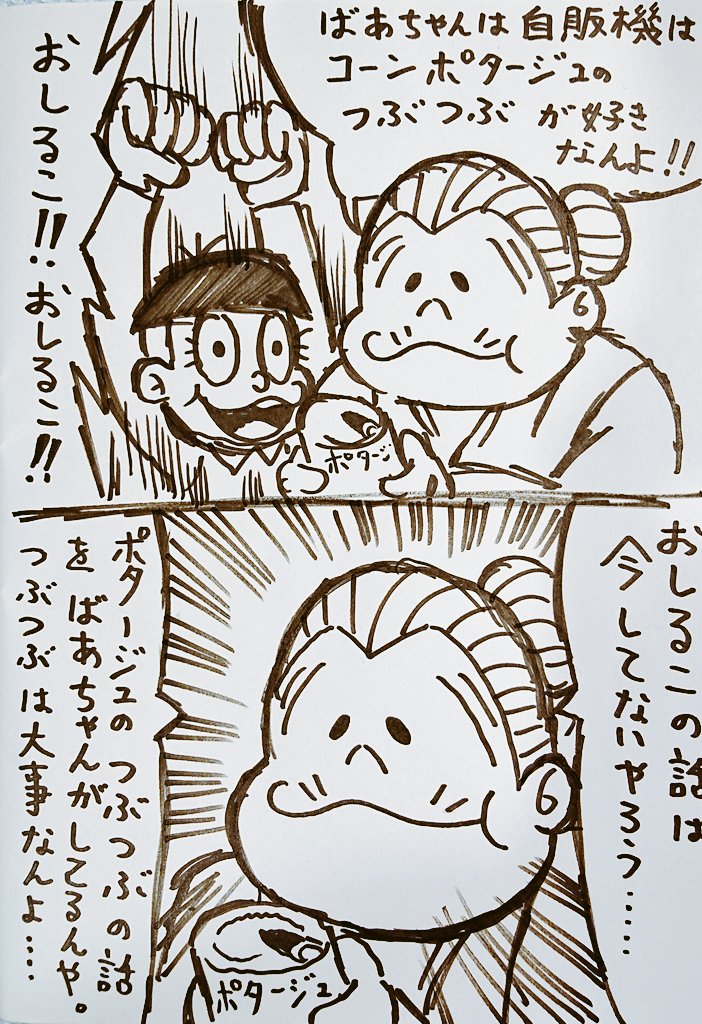 ばあちゃんは自販機は
コーンポタージュの
つぶつぶが好き
なんよ!!
おしるこ!!おしるこ!!
ポタージ
おしるこの話は
今してないやろう……
ポタージュのつぶつぶの話
をばあちゃんがしてるんや。
つぶつぶは大事なんよ……
ポタージュ